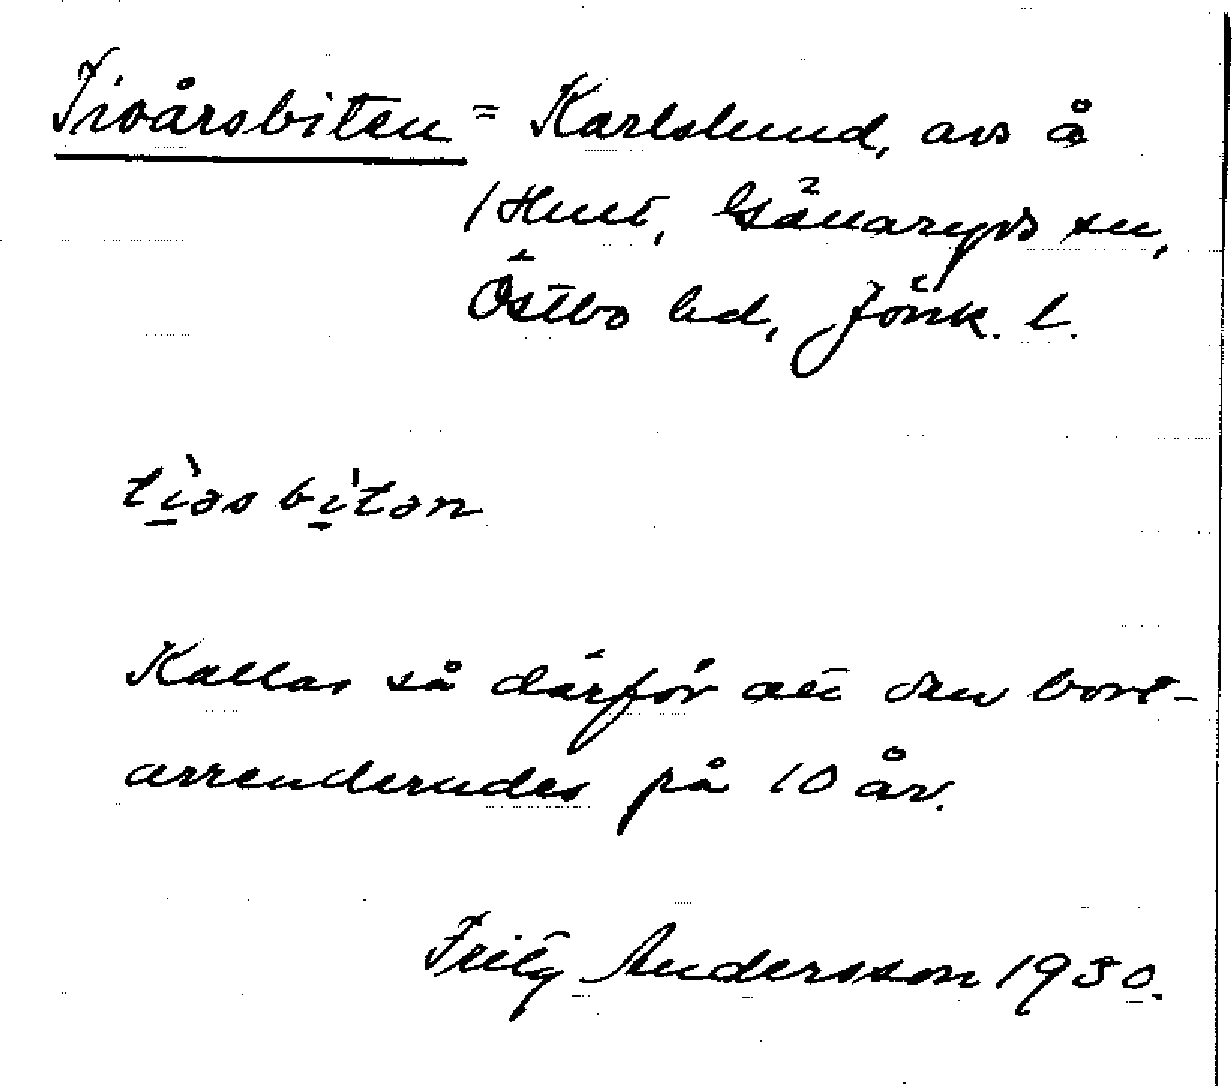 Tioårsbiten = Karlslund, avs å
1 Hult, Gällaryds sn,
Östbo hd, Jönk. l.
tìəsbi'tən
Kallas så därför att den bort-
arrenderades på 10 år.
Fritz Andersson 1930.